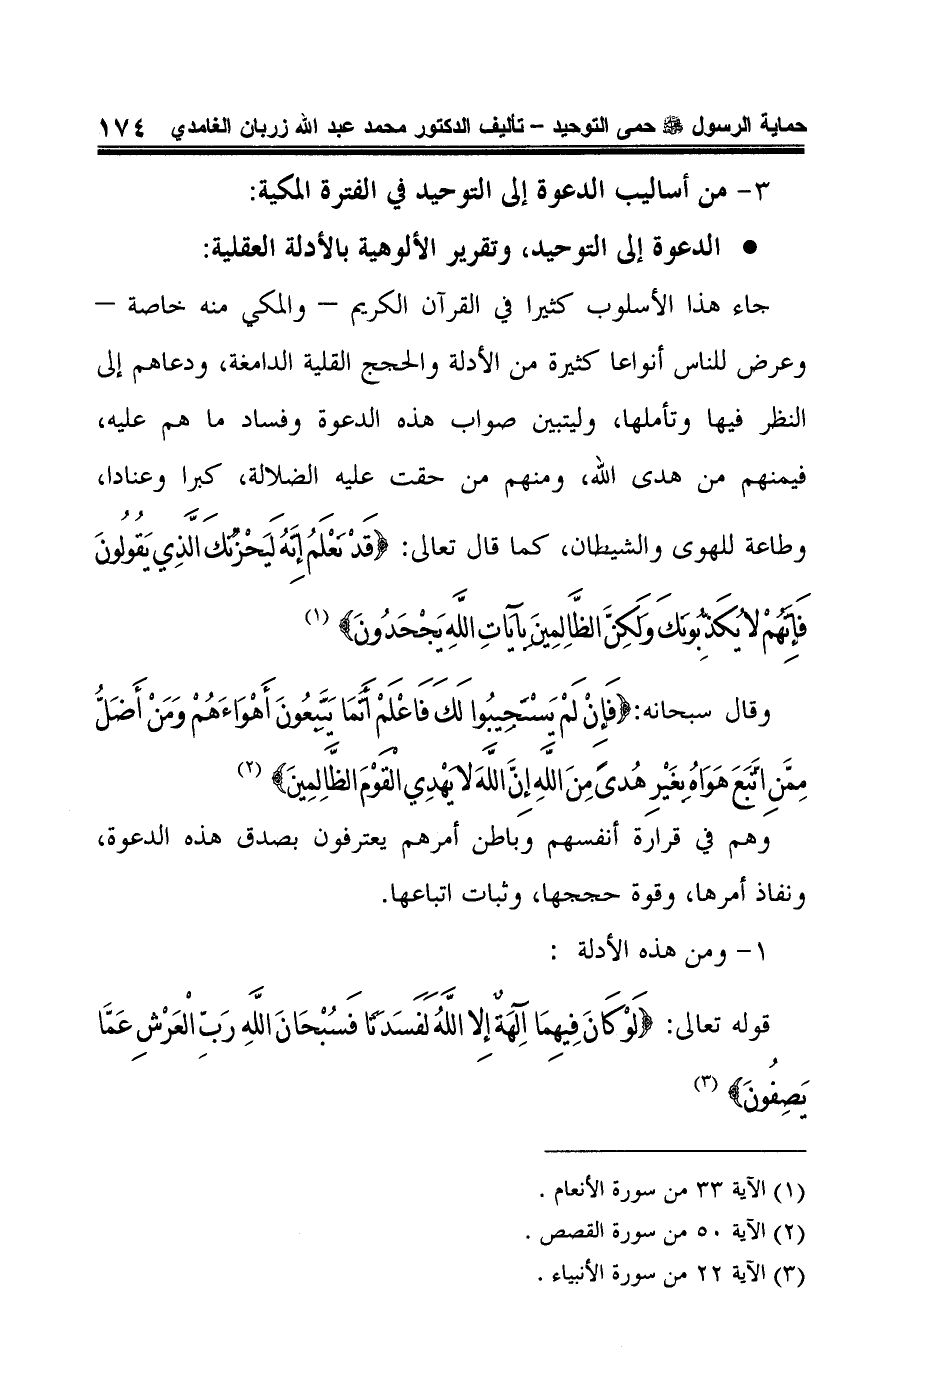 حماية الرسول ﷺ حمى التوحيد – تأليف الدكتور محمد عبد الله زربان الغامدي ١٧٤
٣- من أساليب الدعوة إلى التوحيد في الفترة المكية:
● الدعوة إلى التوحيد، وتقرير الألوهية بالأدلة العقلية:
جاء هذا الأسلوب كثيرا في القرآن الكريم – والمكي منه خاصة –
وعرض للناس أنواعا كثيرة من الأدلة والحجج القلية الدامغة، ودعاهم إلى
النظر فيها وتأملها، وليتبين صواب هذه الدعوة وفساد ما هم عليه،
فيمنهم من هدى الله، ومنهم من حقت عليه الضلالة، كبرا وعنادا،
وطاعة للهوى والشيطان، كما قال تعالى: ﴿قَدْ نَعْلَمُ إِنَّهُ لَيَحْزُنُكَ الَّذِي يَقُولُونَ
فَإِنَّهُمْ لاَ يُكَذِّبُونَكَ وَلَكِنَّ الظَّالِمِينَ بِآيَاتِ اللَّهِ يَجْحَدُونَ﴾ (١)
وقال سبحانه: ﴿فَإِنْ لَمْ يَسْتَجِيبُوا لَكَ فَاعْلَمْ أَنَّمَا يَتَّبِعُونَ أَهْوَاءَهُمْ وَمَنْ أَضَلُّ
مِمَّنِ اتَّبَعَ هَوَاهُ بِغَيْرِ هُدىً مِنَ اللَّهِ إِنَّ اللَّهَ لا يَهْدِي الْقَوْمَ الظَّالِمِينَ﴾ (٢)
وهم في قرارة أنفسهم وباطن أمرهم يعترفون بصدق هذه الدعوة،
ونفاذ أمرها، وقوة حججها، وثبات اتباعها.
١- ومن هذه الأدلة :
قوله تعالى: ﴿لَوْ كَانَ فِيهِمَا آلِهَةٌ إِلا اللَّهُ لَفَسَدَتَا فَسُبْحَانَ اللَّهِ رَبِّ الْعَرْشِ عَمَّا
يَصِفُونَ﴾ (٣)
(١) الآية ٣٣ من سورة الأنعام .
(٢) الآية ٥٠ من سورة القصص .
(٣) الآية ٢٢ من سورة الأنبياء .